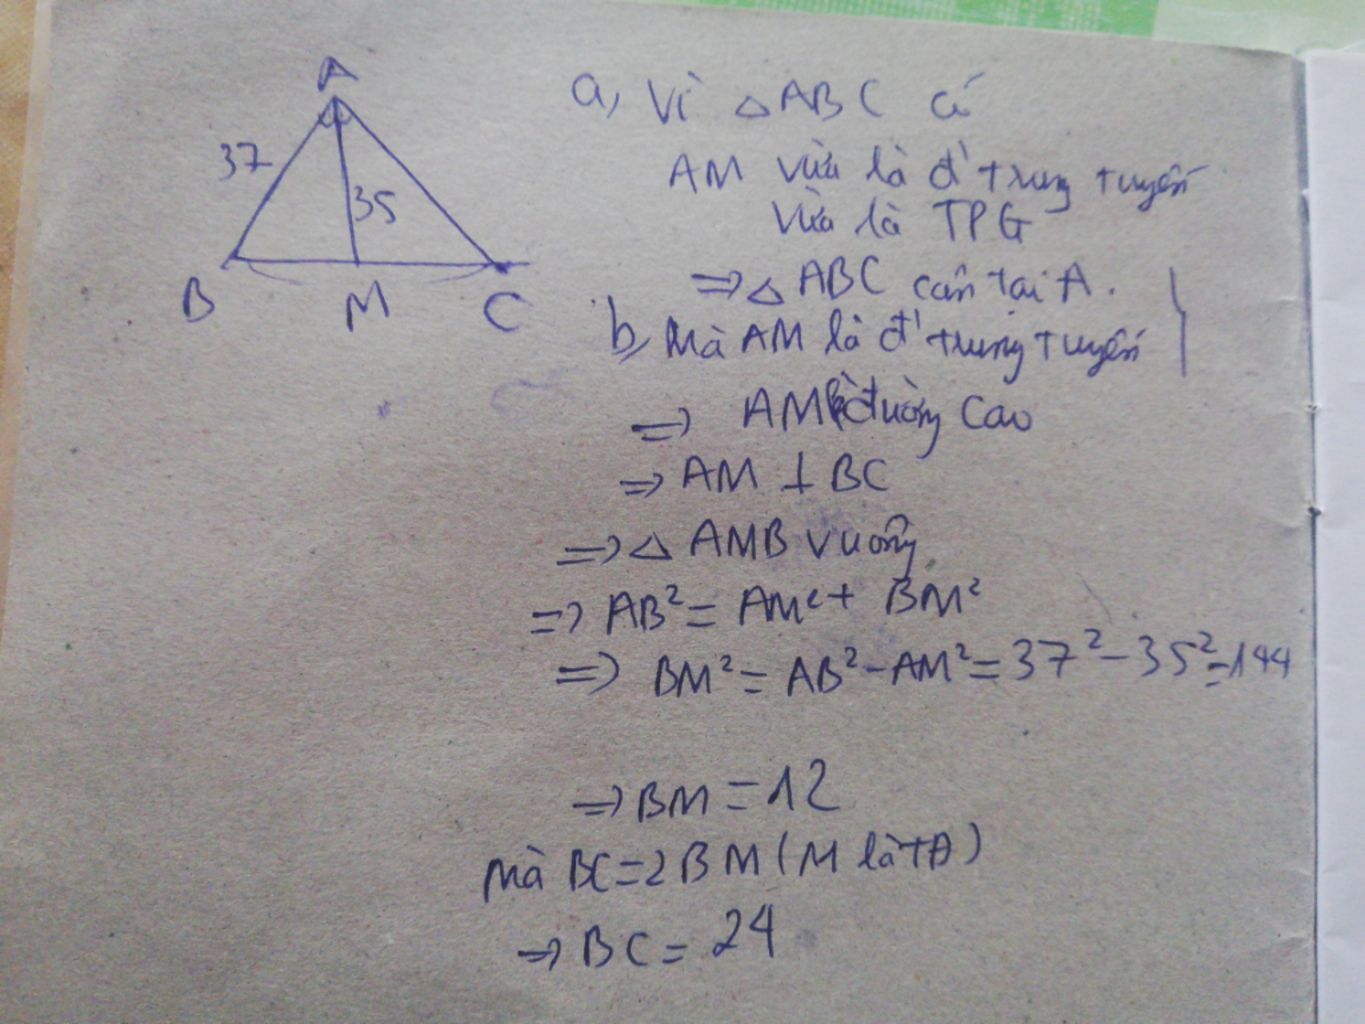 A
37
35
B M C
a, Vì △ABC có
AM vừa là đ' trung tuyến
vừa là TPG
=> △ ABC cân tại A.
b, Mà AM là đ' trung tuyến
=> AM là đường cao
=> AM ⊥ BC
=> △ AMB vuông
=> AB² = AM² + BM²
=> BM² = AB² - AM² = 37² - 35² = 144
=> BM = 12
Mà BC = 2BM (M là TĐ)
=> BC = 24